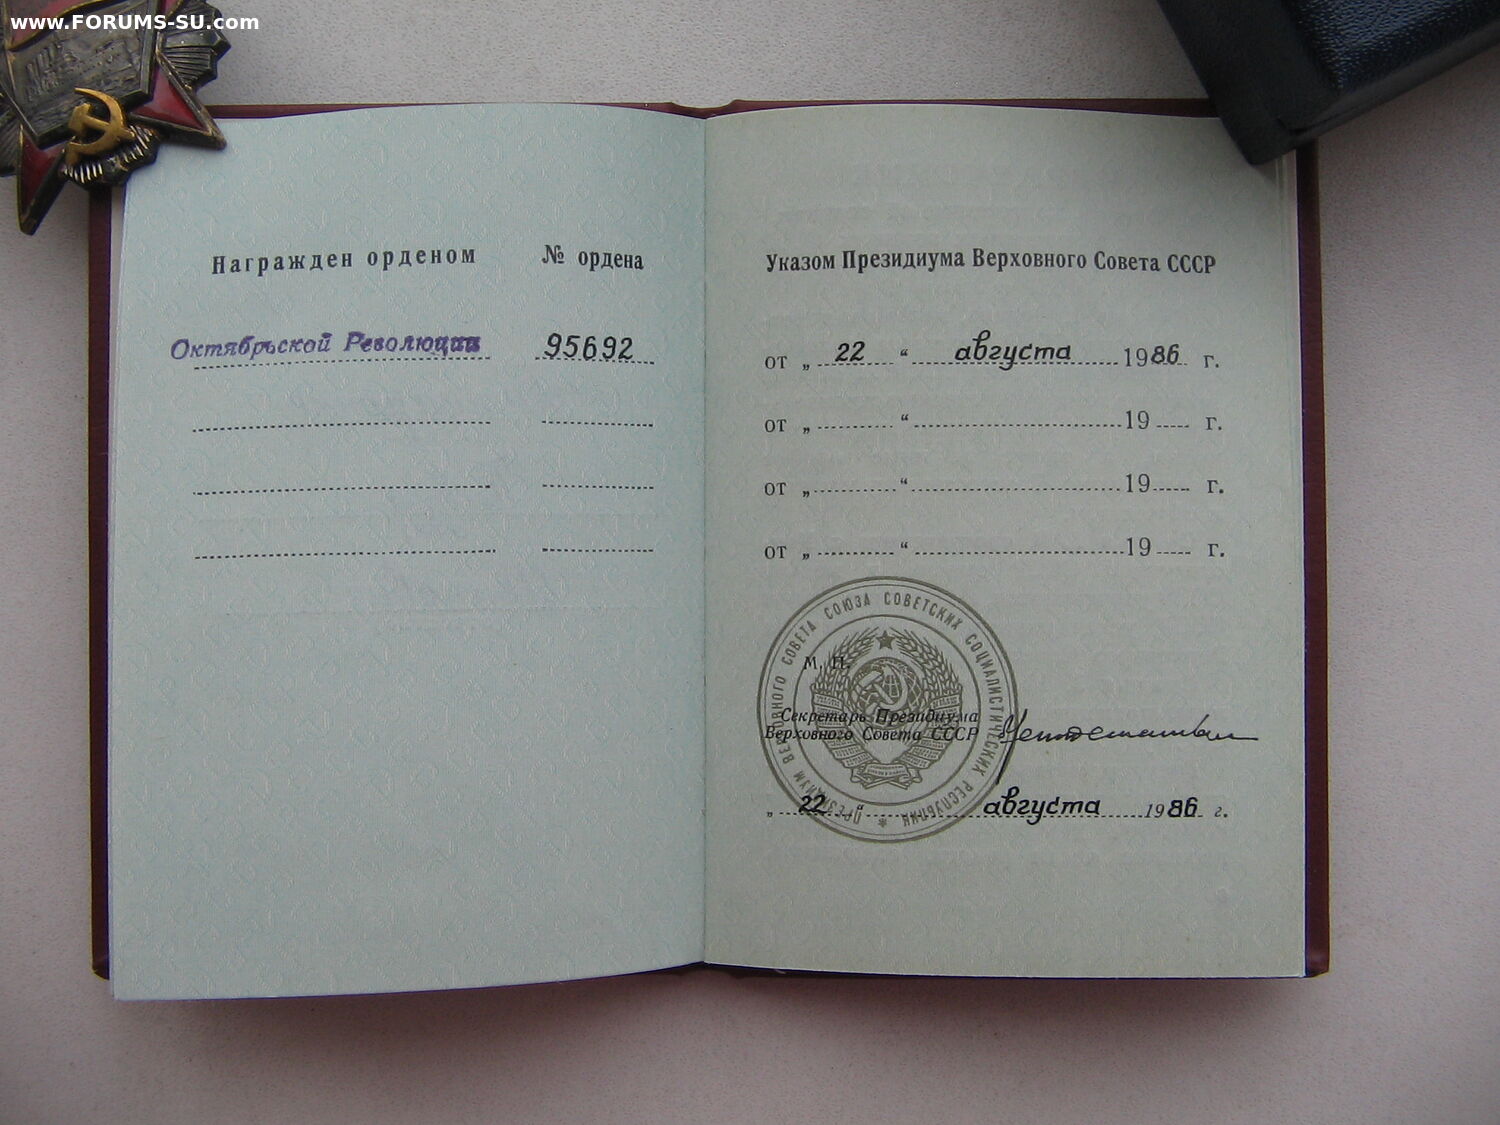 www.FORUMS-SU.com
Награжден орденом № ордена
Октябрьской Революции 95692
Указом Президиума Верховного Совета СССР
от „ 22 “ августа 1986 г.
от „ “ 19 г.
от „ “ 19 г.
от „ “ 19 г.
ПРЕЗИДИУМ ВЕРХОВНОГО СОВЕТА СОЮЗА СОВЕТСКИХ СОЦИАЛИСТИЧЕСКИХ РЕСПУБЛИК
М. П.
Секретарь Президиума
Верховного Совета СССР
„ 22 “ августа 1986 г.